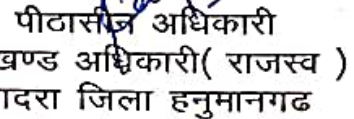 पीठासीन अधिकारी
खण्ड अधिकारी( राजस्व )
ादरा जिला हनुमानगढ